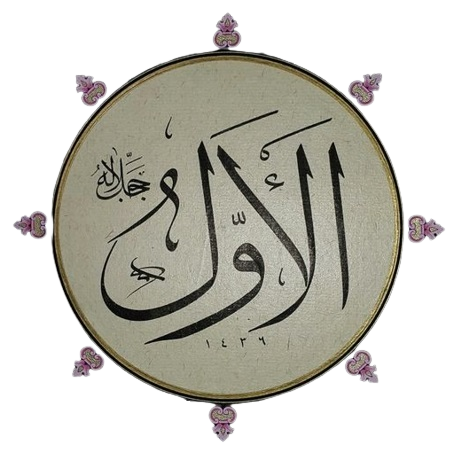 الأوَّل
جل جلاله
١٤٣٦